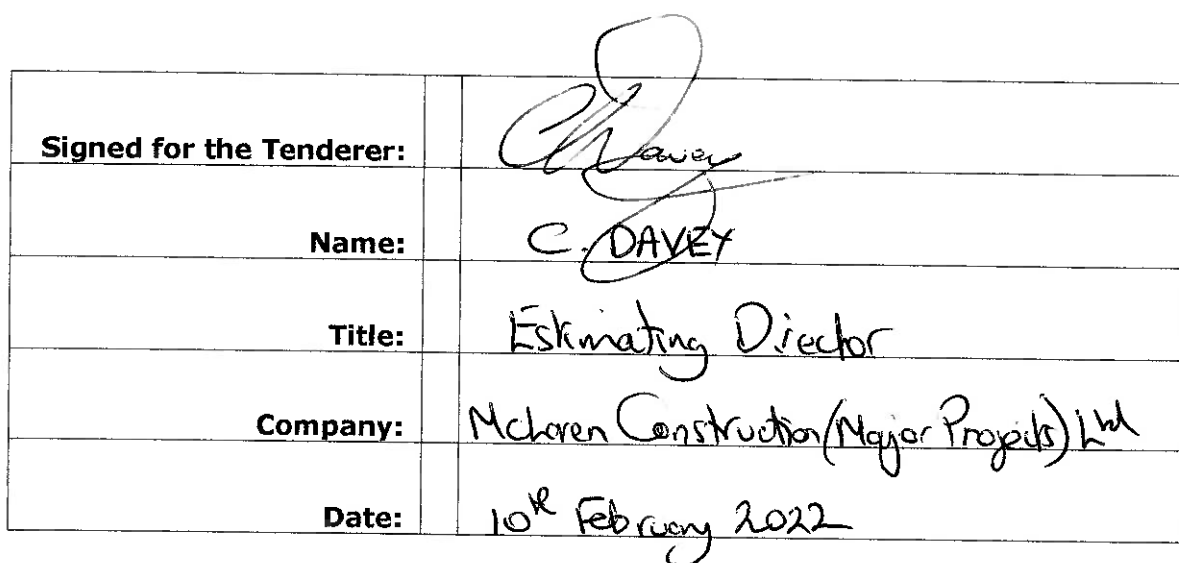 Signed for the Tenderer: CDavey
Name: C. DAVEY
Title: Estimating Director
Company: McLaren Construction (Major Projects) Ltd
Date: 10th February 2022